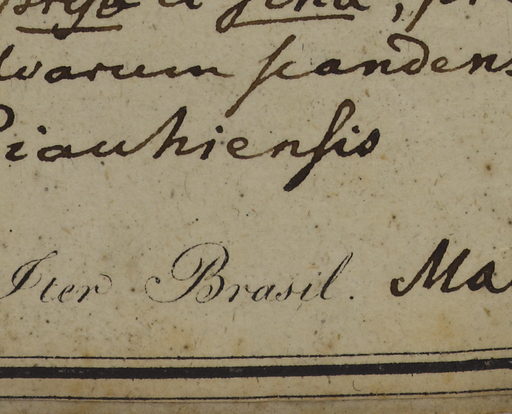 et
lvarum scandens
Piauhiensis
Iter Brasil. Ma